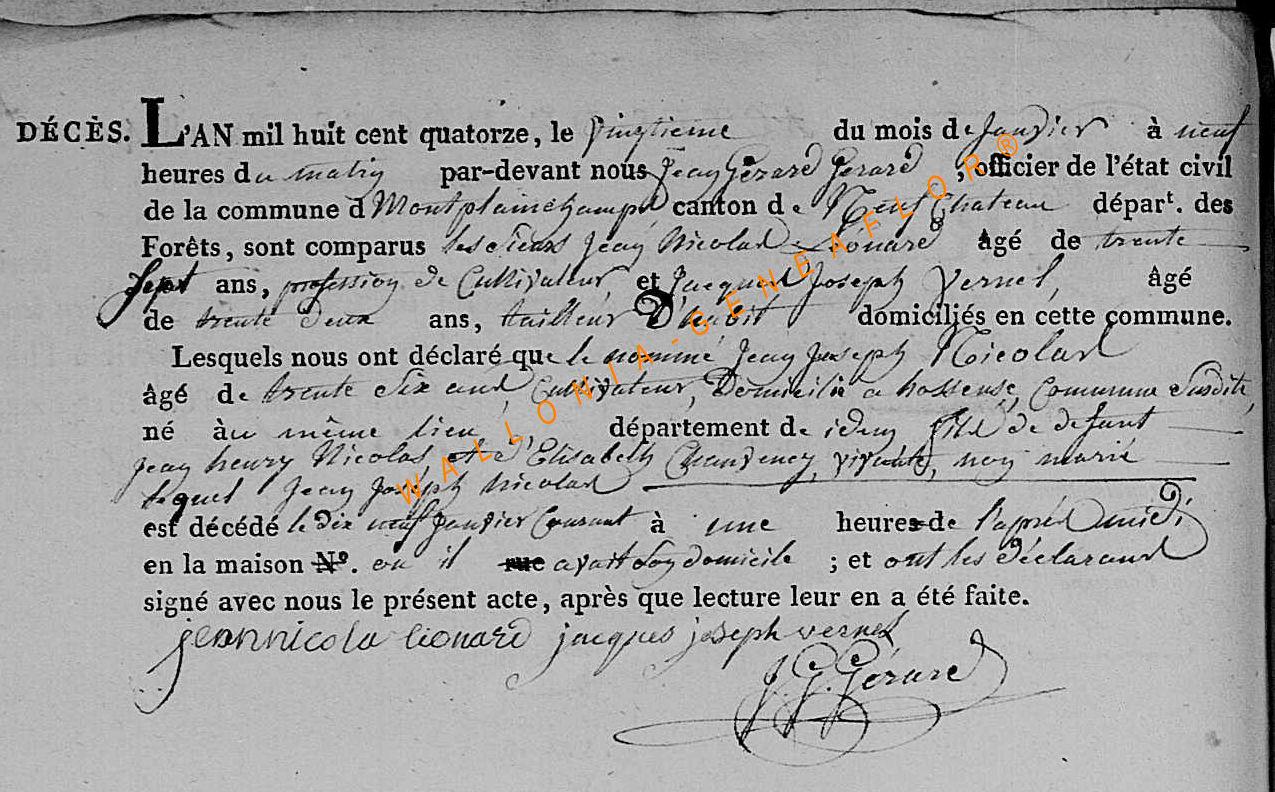 DÉCÈS. L'AN mil huit cent quatorze, le vingtieme du mois de janvier à neuf
heures du matin par-devant nous Jean Gérard Gerard, officier de l'état civil
de la commune d Montplainchamps canton de Neufchateau départ. des
Forêts, sont comparus les sieurs Jean Nicolas Léonard âgé de trente
sept ans, profession de Cultivateur et Jacques Joseph Vernel, âgé
de trente deux ans, tailleur D'habit domiciliés en cette commune.
Lesquels nous ont déclaré que le nommé Jean Joseph Nicolas
âgé de trente six ans, Cultivateur, Domicilié a hosseuse, Commune susdite,
né àu même lieu département de idem fils de defunt
jean henry Nicolas et d'Elisabeth vivante, non marié
lequel Jean Joséph nicolas
est décédé le dix neuf janvier Courant à une heures de l'après midi
en la maison Nº. ou il rue avait son domicile ; et ont les déclarans
signé avec nous le présent acte, après que lecture leur en a été faite.
jean nicola lionard jacques joseph vernel
J. G. Gérard
WALLONIA-GENEAFLOR®